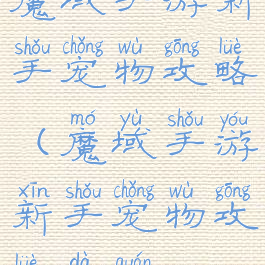 魔域手游新
shǒu chǒng wù gōng lüè
手宠物攻略
mó yù shǒu yóu
（魔域手游
xīn shǒu chǒng wù gōng
新手宠物攻
lüè dà quán